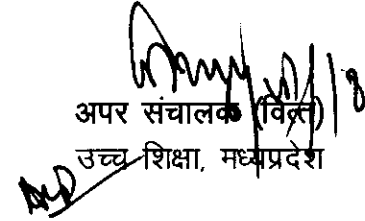 अपर संचालक (वित्त)
उच्च शिक्षा, मध्यप्रदेश